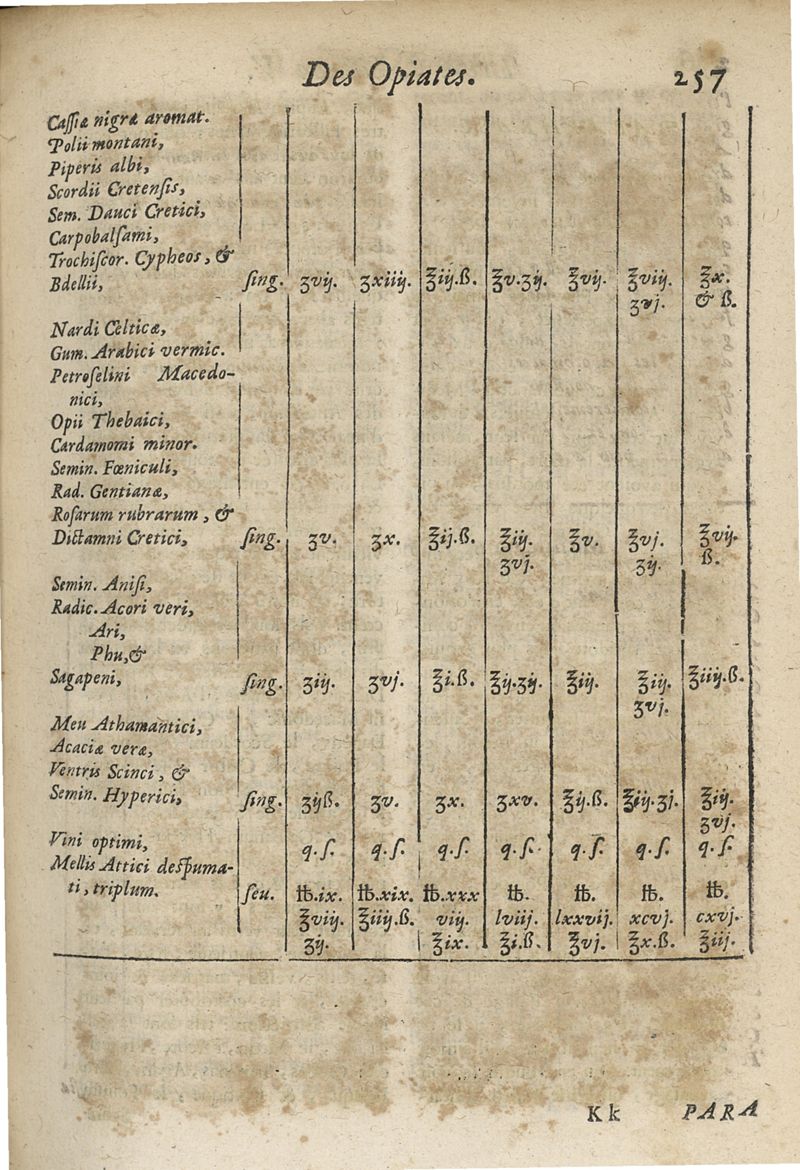 Des Opiates. 257
Cassiæ nigræ aromat.
Polii montani,
Piperis albi,
Scordii Cretensis,
Sem. Dauci Cretici,
Carpobalsami,
Trochiscor. Cypheos, &
Bdellii, sing. ʒvij. ʒxiiij. ℥iij.ß. ℥v.ʒij. ℥vij. ℥viij. ℥x.
ʒvj. & ß.
Nardi Celticæ,
Gum. Arabici vermic.
Petroselini Macedo-
nici,
Opii Thebaici,
Cardamomi minor.
Semin. Fœniculi,
Rad. Gentianæ,
Rosarum rubrarum, &
Dictamni Cretici, sing. ʒv. ʒx. ℥ij.ß. ℥iij. ℥v. ℥vj. ℥vij.
ʒvj. ʒij. ß.
Semin. Anisi,
Radic. Acori veri,
Ari,
Phu, &
Sagapeni, sing. ʒiij. ʒvj. ℥i.ß. ℥ij.ʒij. ℥iij. ℥iij. ℥iiij.ß.
ʒvj.
Meu Athamantici,
Acaciæ veræ,
Ventris Scinci, &
Semin. Hyperici, sing. ʒijß. ʒv. ʒx. ʒxv. ℥ij.ß. ℥iij.ʒj. ℥iij.
ʒvj.
Vini optimi, q.s. q.s. q.s. q.s. q.s. q.s. q.s.
Mellis Attici despuma-
ti, triplum. seu. ℔.ix. ℔.xix. ℔.xxx ℔. ℔. ℔. ℔.
℥viij. ℥iiij.ß. viij. lviij. lxxvij. xcvj. cxvj.
ʒij. ℥ix. ℥i.ß. ℥vj. ℥x.ß. ℥iij.
Kk PARA